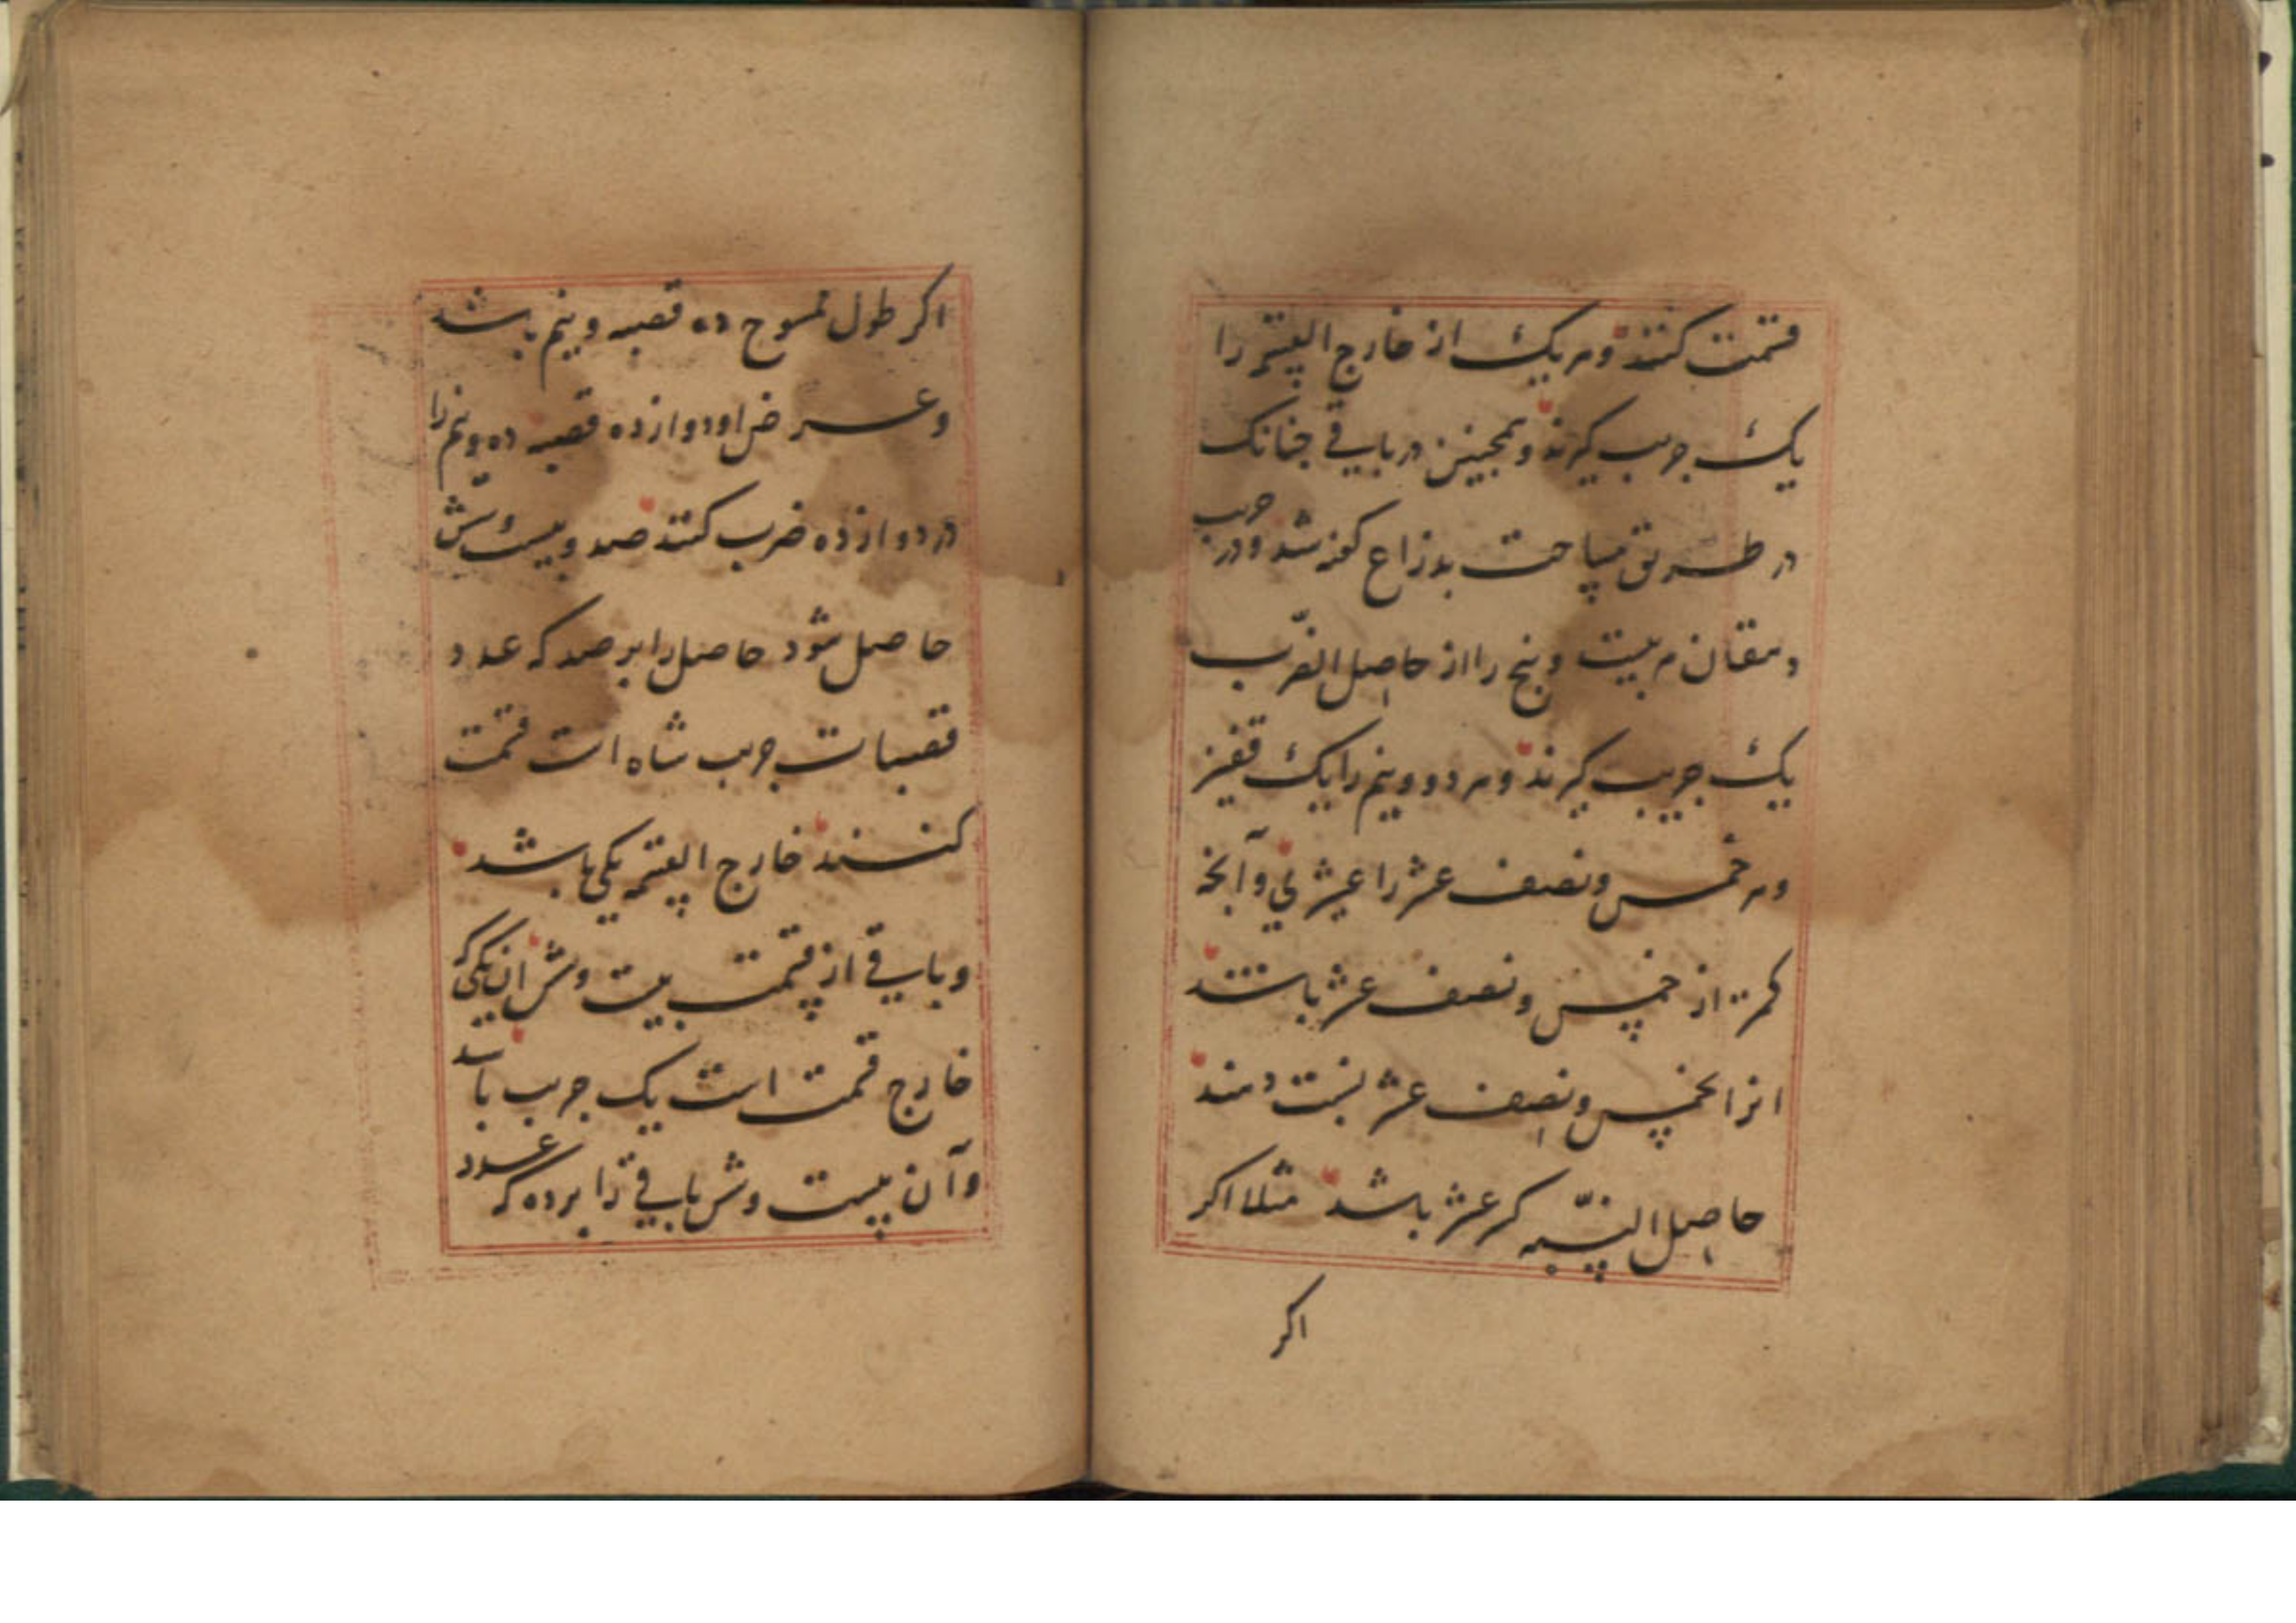 قسمت کنند وهر یک از خارج القسمة را
یک جریب کیرند و همچنین در باقی چنانک
در طریق مساحت بذراع کفته شد ودر جریب
دهقان هر بیست وپنج را از حاصل الضّرب
یک جریب کیرند وهر دو ونیم را یک قفیز
وهر خمس ونصف عشر را عشیری وآنچه
کمتر از خمس ونصف عشر باشد
انرا بخمس ونصف عشر نسبت دهند
حاصل النّسبه کسر عشر باشد مثلا اکر
اکر
اکر طول ممسوح ده قصبه ونیم باشد
وعرض او دوازده قصبه ده ونیم را
در دوازده ضرب کنند صد وبیست وشش
حاصل شود حاصل را بر صد که عدد
قصبات جریب شاه است قسمت
کنند خارج القسمه یکی باشد
وباقی از قسمت بیست وشش ان یکی که
خارج قسمت است یک جریب باشد
وآن بیست وشش باقی را بر ده که عدد